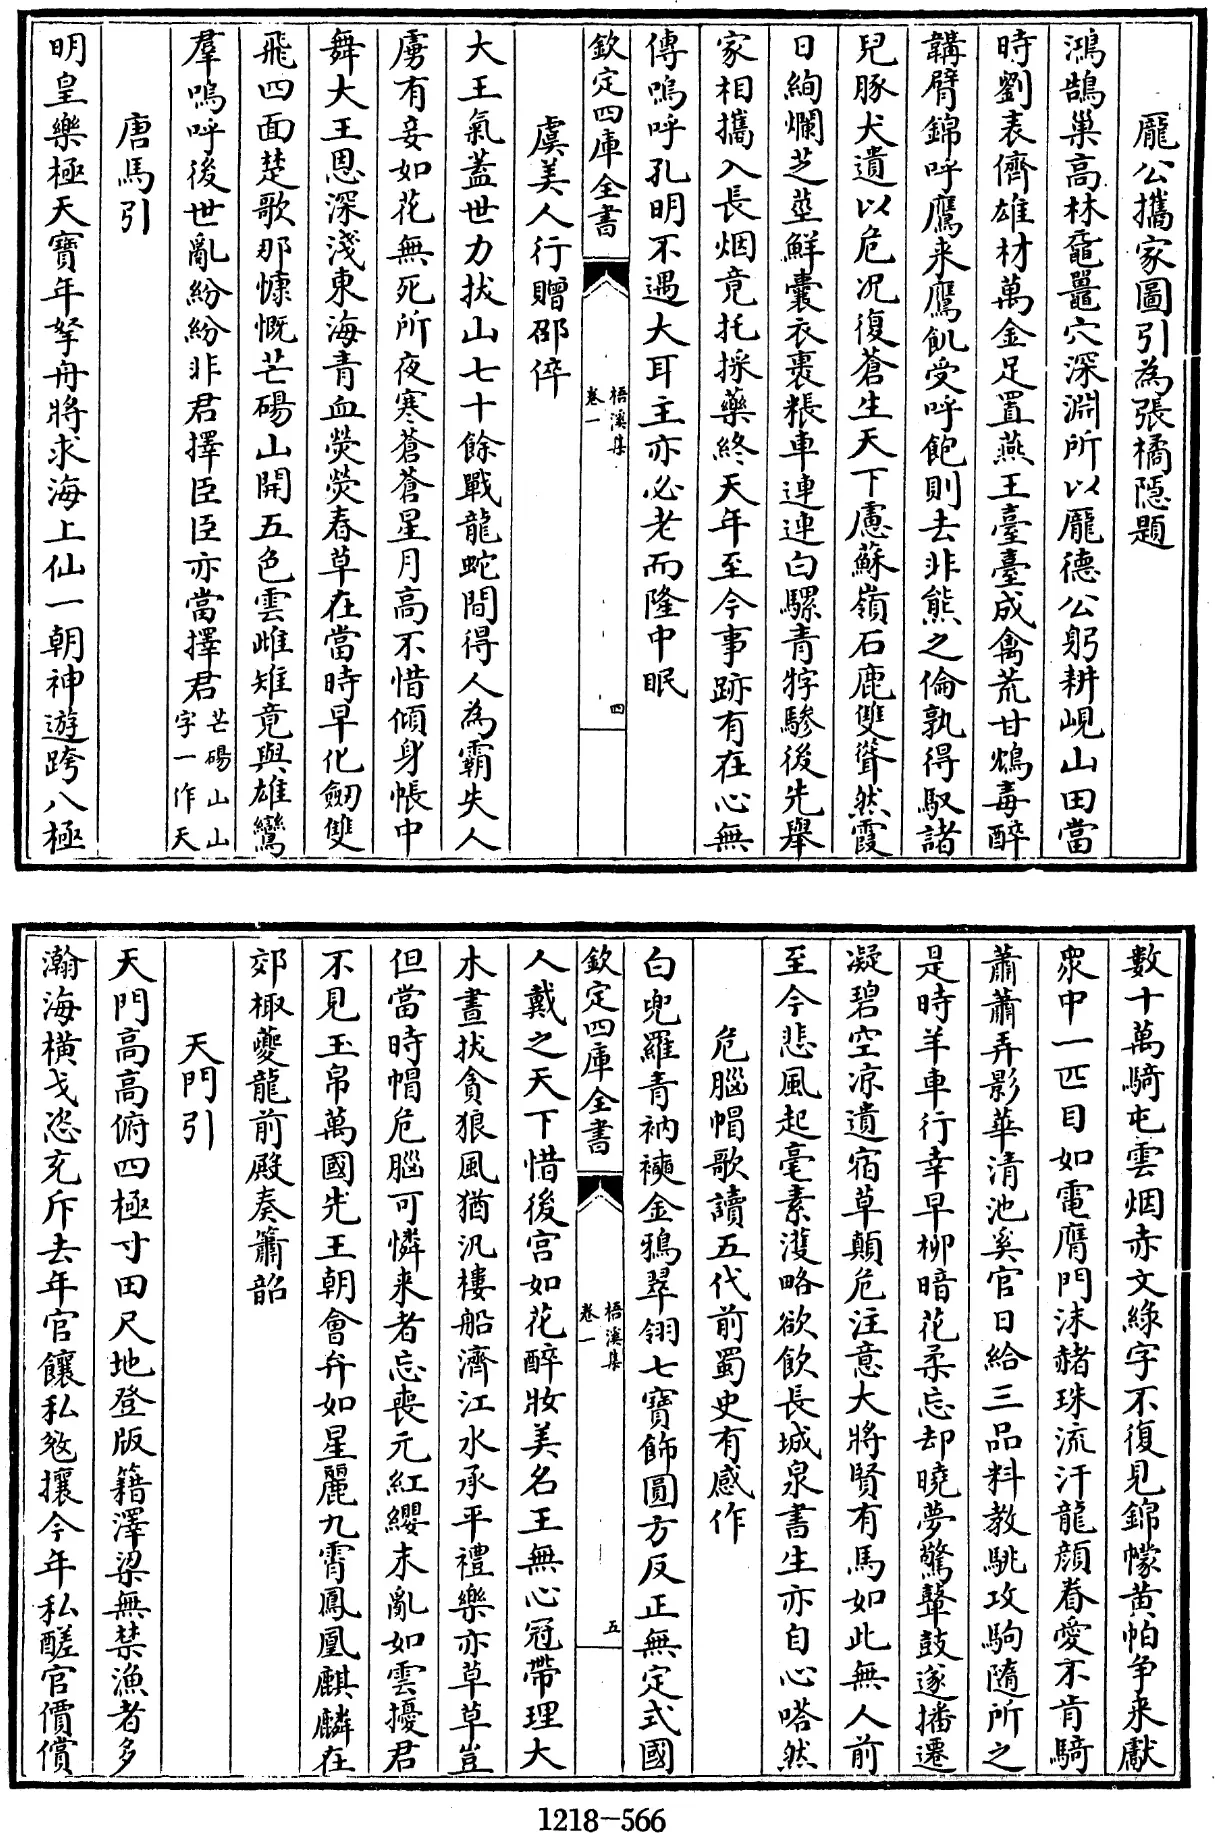 龎公攜家圖引為張橘隠題
鴻鵠巢高林黿鼉穴深淵所以龎德公躬耕峴山田當
時劉表儕雄材萬金足置燕王臺臺成禽荒甘鴆毒醉
韝臂錦呼鷹来鷹飢受呼飽則去非熊之倫孰得馭諸
兒豚犬遺以危况復蒼生天下慮蘇嶺石鹿雙聳然霞
日絢爛芝莖鮮囊衣裹粻車連連白騾青牸驂後先舉
家相攜入長烟竟托採藥終天年至今事跡有在心無
傳嗚呼孔明不遇大耳主亦必老而隆中眠
欽定四庫全書
梧溪集
卷一
四
虞美人行贈邵倅
大王氣蓋世力拔山七十餘戰龍蛇間得人為霸失人
虜有妾如花無死所夜寒蒼蒼星月高不惜傾身帳中
舞大王恩深淺東海青血熒熒春草在當時早化劒雙
飛四面楚歌那慷慨芒碭山開五色雲雌雉竟與雄鸞
羣嗚呼後世亂紛紛非君擇臣臣亦當擇君芒碭山山
字一作天
唐馬引
明皇樂極天寶年拏舟將求海上仙一朝神遊跨八極
數十萬騎屯雲烟赤文綠字不復見錦幪黄帕争来獻
衆中一匹目如電膺門沫赭珠流汗龍顔眷愛不肯騎
蕭蕭弄影華清池奚官日給三品料教駣攻駒隨所之
是時羊車行幸早柳暗花柔忘却曉夢驚鼙鼓遂播遷
凝碧空凉遺宿草顛危注意大將賢有馬如此無人前
至今悲風起毫素濩略欲飲長城泉書生亦自心嗒然
危腦帽歌讀五代前蜀史有感作
白兜羅青衲襖金鴉翠翎七寶飾圓方反正無定式國
欽定四庫全書
梧溪集
卷一
五
人戴之天下惜後宫如花醉妝美名王無心冠帶理大
木晝拔貪狼風猶汎樓船濟江水承平禮樂亦草草豈
但當時帽危腦可憐来者忘喪元紅纓末亂如雲擾君
不見玉帛萬國先王朝會弁如星麗九霄鳳凰麒麟在
郊棷夔龍前殿奏簫韶
天門引
天門高高俯四極寸田尺地登版籍澤梁無禁漁者多
瀚海横戈恣充斥去年官饟私敓攘今年私醝官價償
1218-566